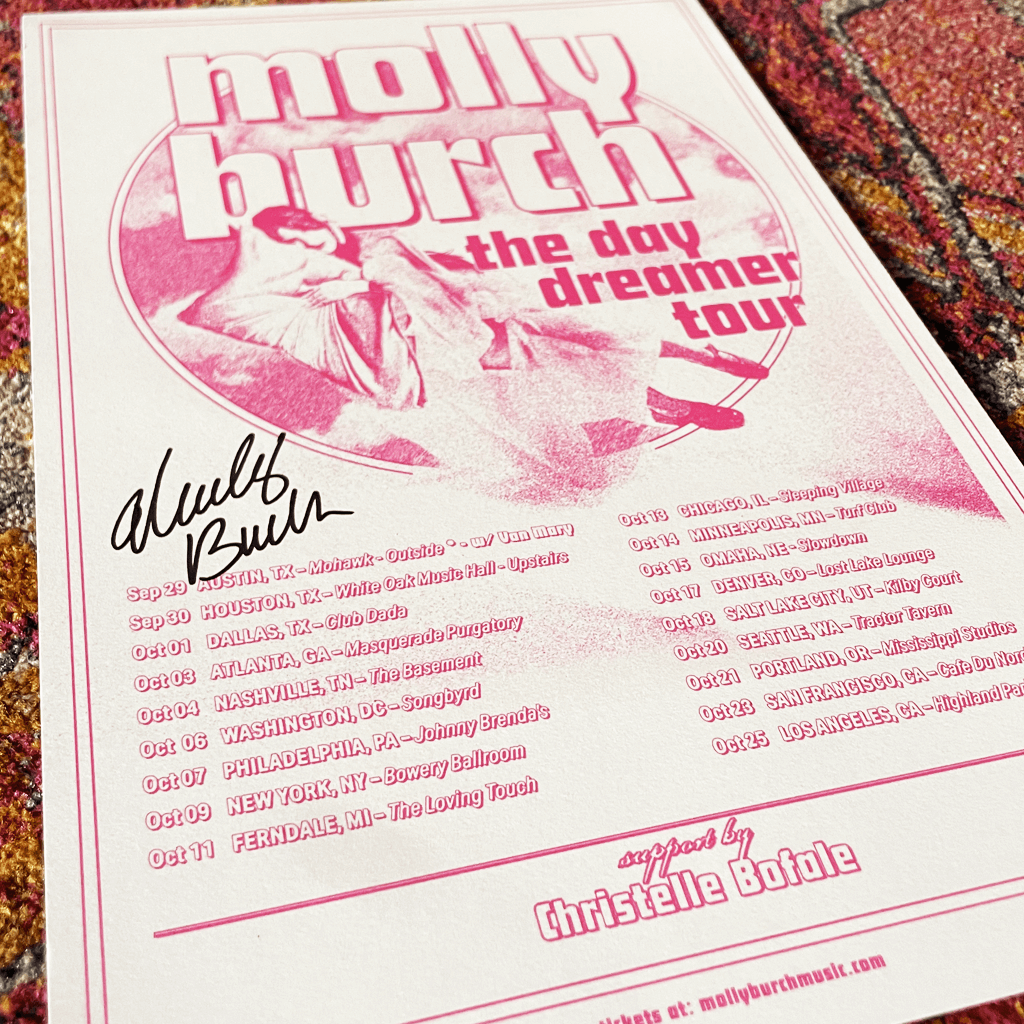 molly
burch
the day
dreamer
tour
Molly
Burch
Sep 29 AUSTIN, TX – Mohawk - Outside * - w/ Van Mary
Sep 30 HOUSTON, TX – White Oak Music Hall - Upstairs
Oct 01 DALLAS, TX – Club Dada
Oct 03 ATLANTA, GA – Masquerade Purgatory
Oct 04 NASHVILLE, TN – The Basement
Oct 06 WASHINGTON, DC – Songbyrd
Oct 07 PHILADELPHIA, PA – Johnny Brenda's
Oct 09 NEW YORK, NY – Bowery Ballroom
Oct 11 FERNDALE, MI – The Loving Touch
Oct 13 CHICAGO, IL – Sleeping Village
Oct 14 MINNEAPOLIS, MN – Turf Club
Oct 15 OMAHA, NE - Slowdown
Oct 17 DENVER, CO – Lost Lake Lounge
Oct 18 SALT LAKE CITY, UT – Kilby Court
Oct 20 SEATTLE, WA – Tractor Tavern
Oct 21 PORTLAND, OR – Mississippi Studios
Oct 23 SAN FRANCISCO, CA – Cafe Du Nord
Oct 25 LOS ANGELES, CA – Highland Par
support by
Christelle Bofale
tickets at: mollyburchmusic.com